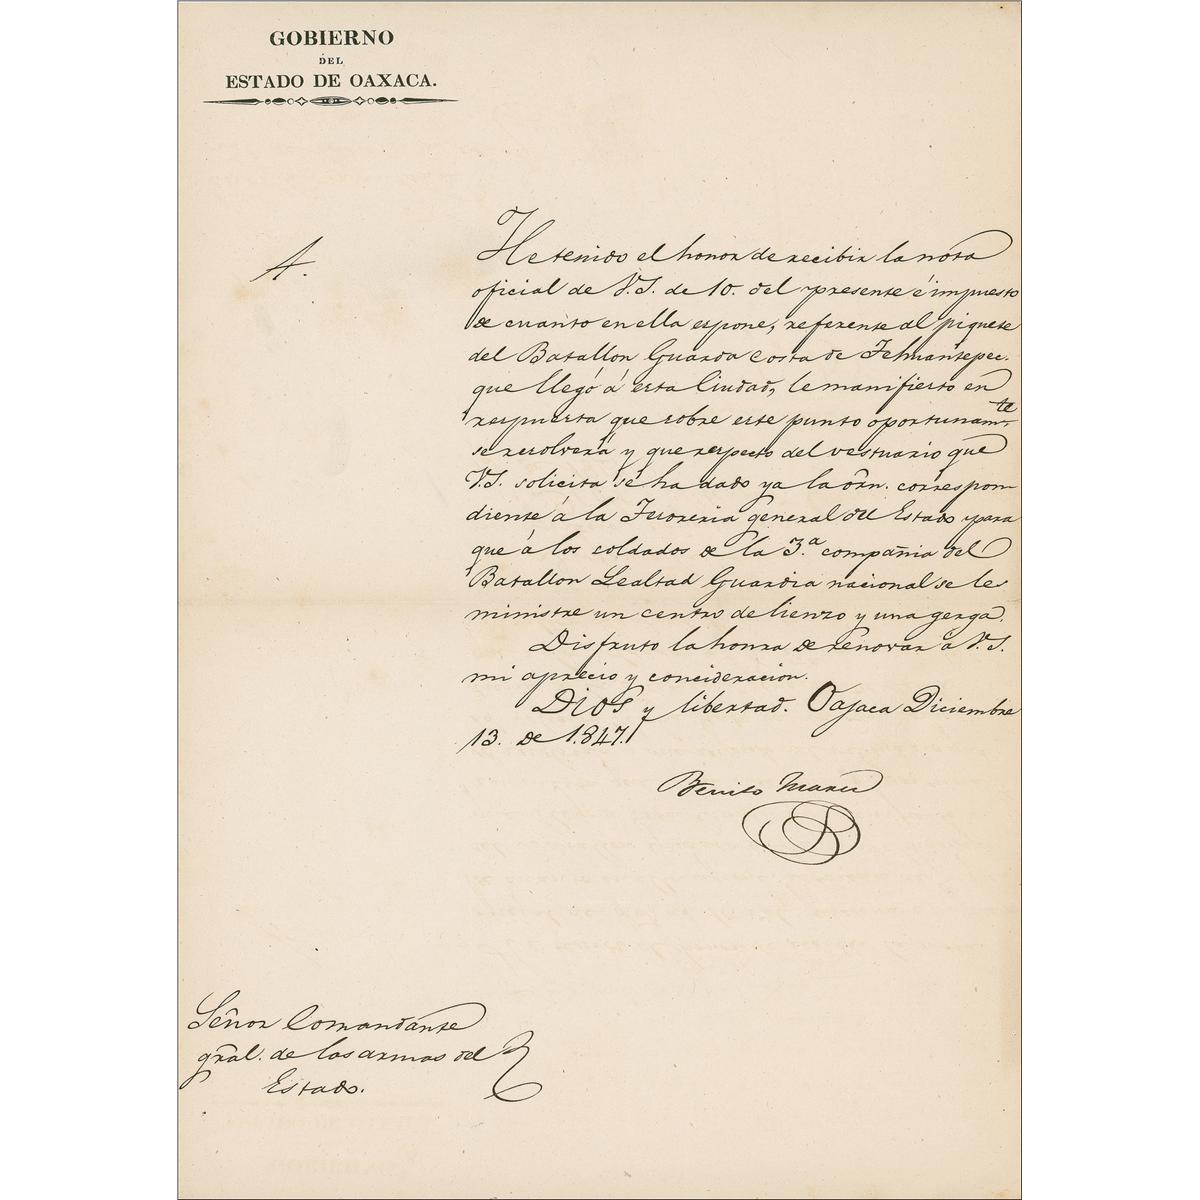 GOBIERNO
DEL
ESTADO DE OAXACA.
A.
He tenido el honor de recibir la nota
oficial de V.S. de 10. del presente é impuesto
de cuanto en ella espone, referente al piquete
del Batallon Guarda costa de Tehuantepec.
que llegó á esta Ciudad, le manifiesto en
respuesta que sobre este punto oportunamte
se resolverá y que respecto del vestuario que
V.S. solicita se ha dado ya la órn. correspon
diente á la Tesoreria general del Estado para
que á los soldados de la 3.a compañia del
Batallon Lealtad Guardia nacional se les
ministre un centro de lienzo y una gerga.
Disfruto la honra de renovar á V.S.
mi aprecio y concideracion.
Dios y libertad. Oajaca Diciembre
13. de 1.847.
Benito Juarez
Señor Comandante
gral. de las armas del
Estado.